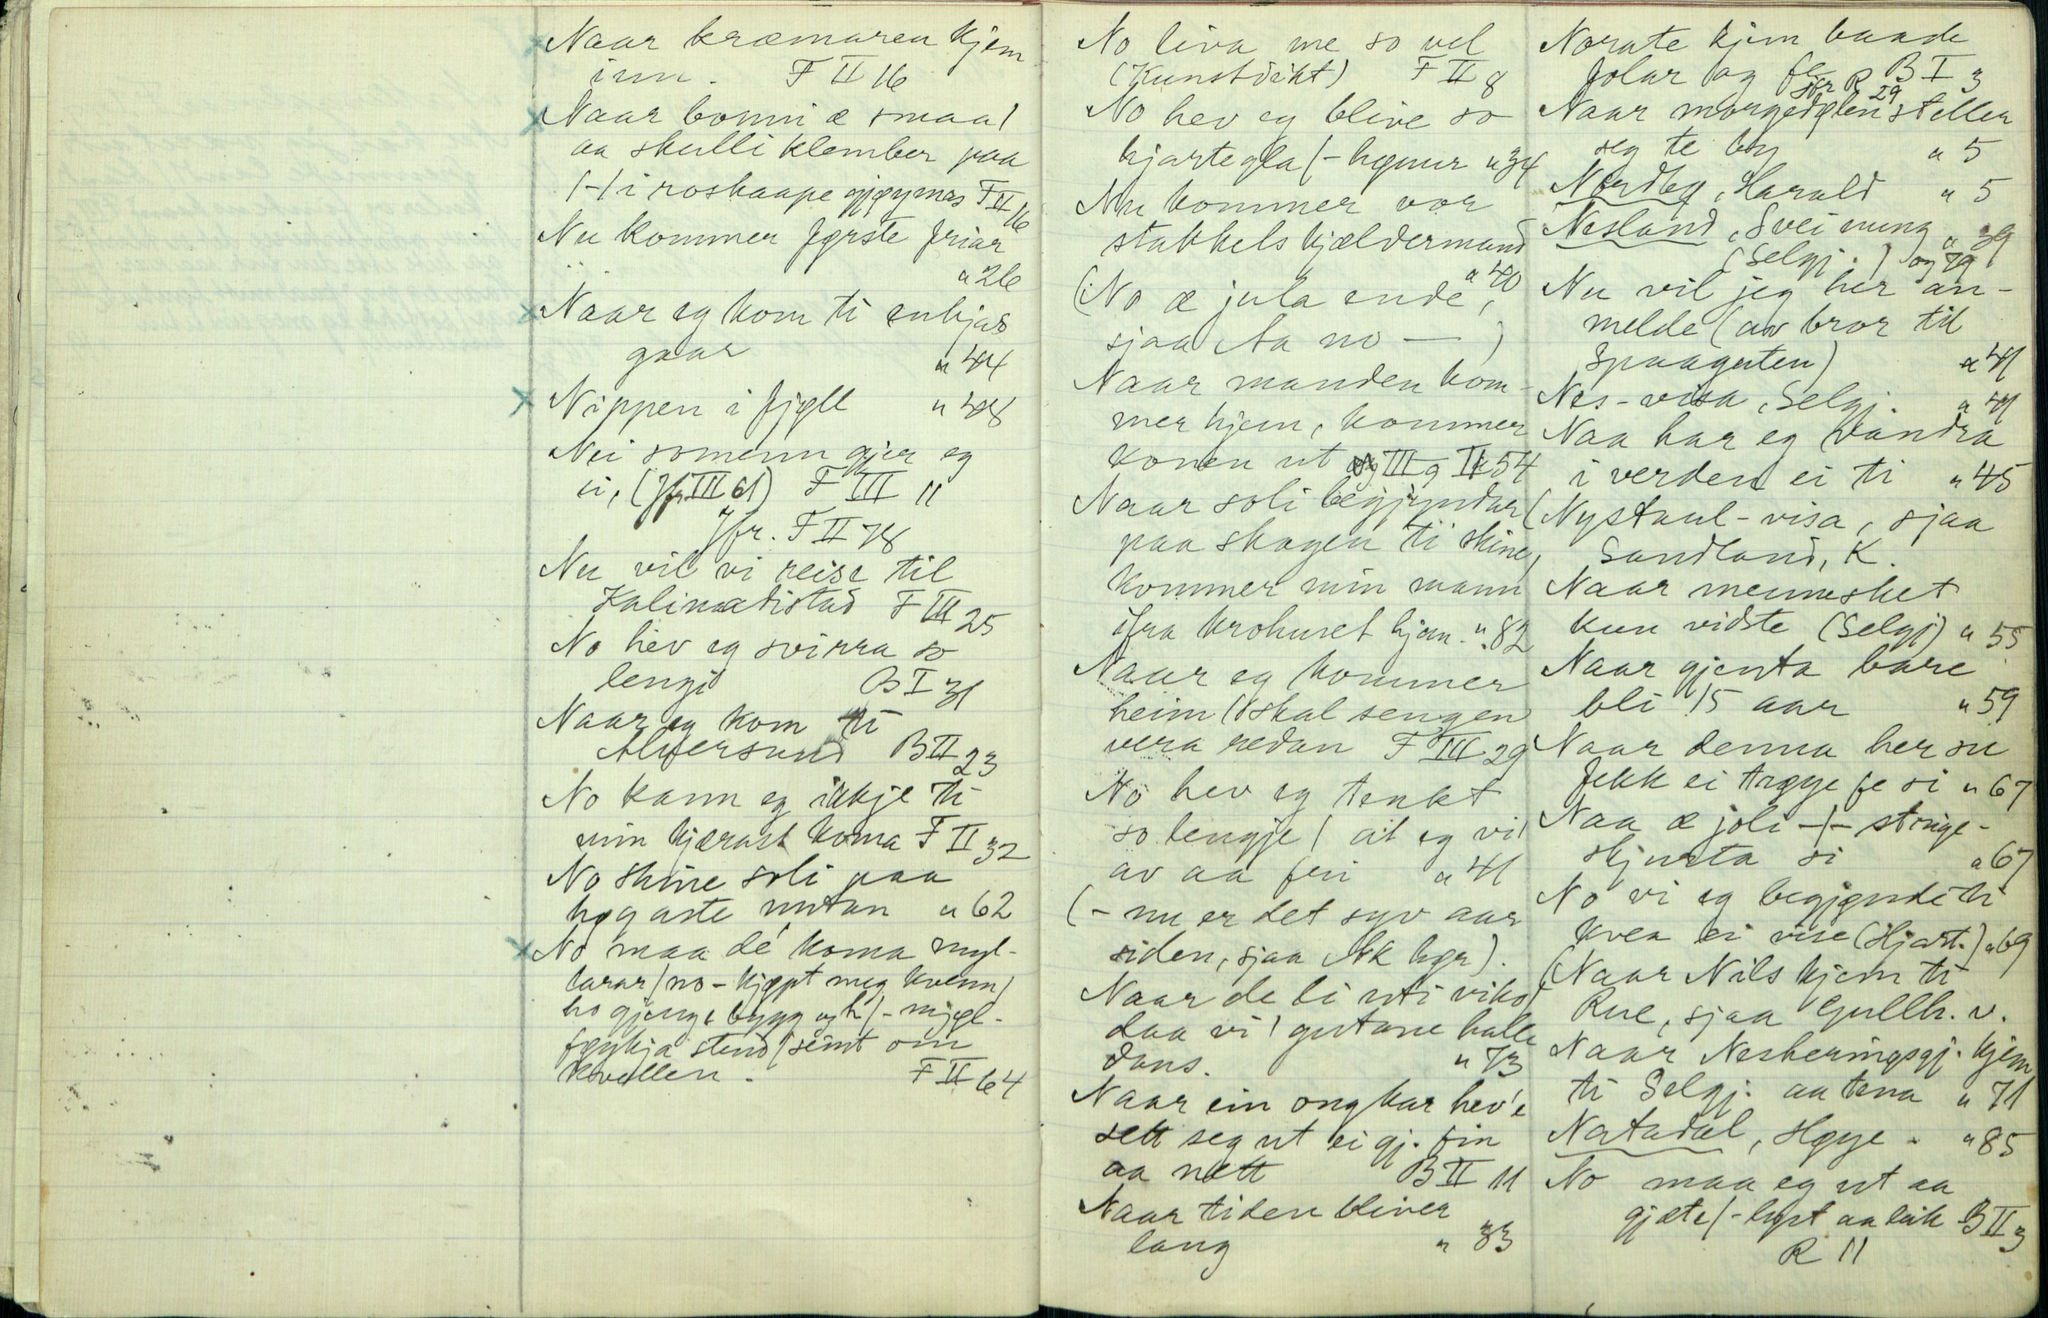 Naar kræmaren kjem
inn. F II 16
Naar bonni æ smaa/
aa skulli klember paa
/-/ i roskaape gjøymes F II 16
Nu kommer første friar
" 26
Naar eg kom ti enkjas
gaar " 44
Nippen i fjøll " 48
Nei somenn gjer eg
ei, (Jfr III 61) F III 11
Jfr. F II 78
Nu vil vi reise til
F III 25
No hev eg svirra so
lengji B I 31
Naar eg kom ti
Alversund B II 23
No kann eg ikkje ti
min kjærast koma F II 32
No skine soli paa
høgaste nutan " 62
No maa de koma myl-
larar/no - kjøpt meg kvenn/
ho gjenge bygg og h/- mjøl-
føykja stend/seint om
kvellen. F II 64
No liva me so vel
(Kunstdikt) F II 8
No hev eg blive so
hjartegla/- hønur " 34
Nu kommer vor
stakkels kjældermand
" 40
(No æ jula ende,
sjaa Aa no — )
Naar manden kom-
mer hjem, kommer
konen ut III 9 II 54
Naar soli begjyndar
paa skogen ti skine,
kommer min mann
ifra krohuset hjem. " 82
Naar eg kommer
heim/skal sengen
vera redan F III 29
No hev eg tenkt
so lengje/ at eg vil
av aa fri " 41
(- nu er det syv aar
siden, sjaa Ak hør).
Naar de li uti viko/
daa vi/ gutane halle
dans. " 73
Naar ein ong kar hev'e
sett seg ut ei gj. fin
aa nett B II 11
Naar tiden bliver
lang " 33
Norate kjem baade
folar og fe B I 3
Jfr R 29
Naar morgedølen steller
seg te by " 5
Nordbø, Harald " 5
Nesland, Sveinung " 39
(Selgj.) og 79
Nu vil jeg her an-
melde (av bror til
Spaaguten) " 41
Nes-visa, Selgj. " 41
Naa har eg vandra
i verden ei ti " 45
(Nystaul-visa, sjaa
Sandland, K.
Naar mennesket
kun vidste (Selgj) " 55
Naar gjenta bare
bli 15 aar " 59
Naar denna her su
fekk ei trøye fe si " 67
Naa æ joli -/- stinge-
skjurta si " 67
No vi eg begjønde ti
kvea ei vise (Hjart.) " 69
(Naar Nils kjem ti
Rue, sjaa Gullh. v.
Naar Nesheringsgj. kjem
ti Selgj. aa tena " 71
Natadal, Høye. " 85
No maa eg ut aa
gjæte/- lyst aa leik B II 3
R 11